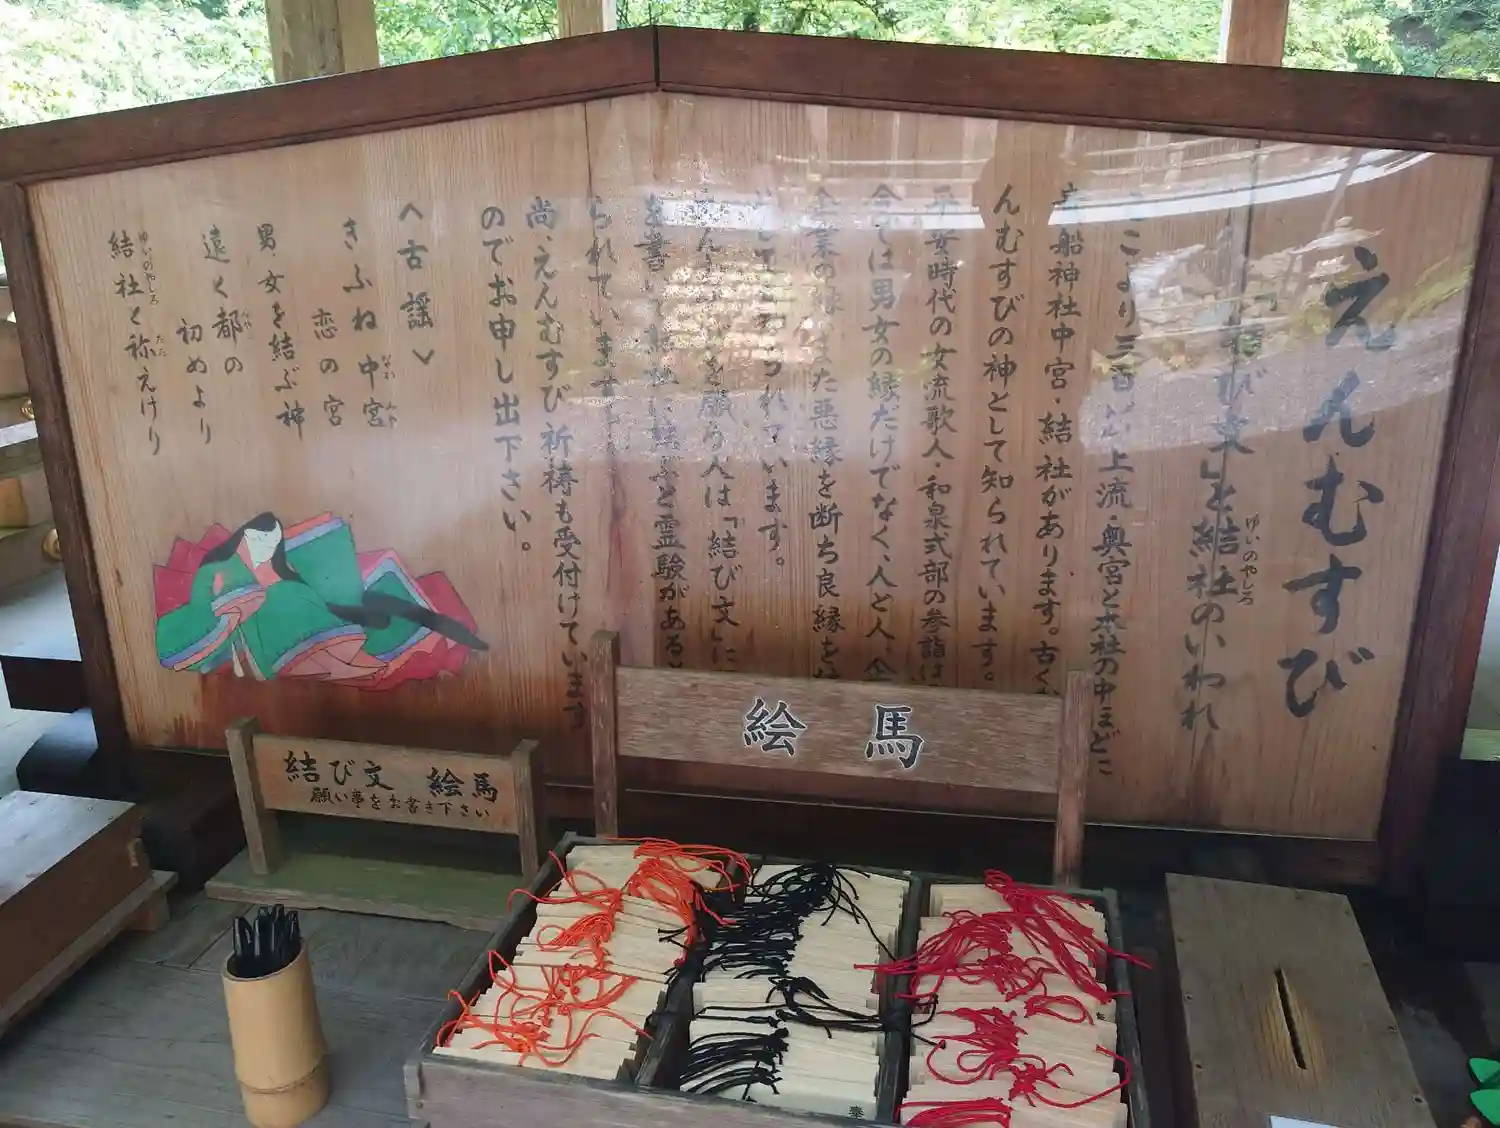 えんむすび
「結び文」と結社のいわれ
ゆいのやしろ
ここより三百 上流・奥宮と本社の中ほどに
船神社中宮・結社があります。古く
んむすびの神として知られています。
平安時代の女流歌人・和泉式部の参詣は
今では男女の縁だけでなく、人と人、企
企業の縁、また悪縁を断ち良縁を
られています。
を願う人は「結び文」に
を書 結ぶと霊験がある
られています
尚、えんむすび祈祷も受付けています
のでお申し出下さい。
へ古謡〉
きふね中宮
なかみや
恋の宮
男女を結ぶ神
遠く都の
みや
初めより
結社く称えけり
ゆいのやしろ
たた
絵馬
結び文 絵馬
願い事をお書き下さい
奉